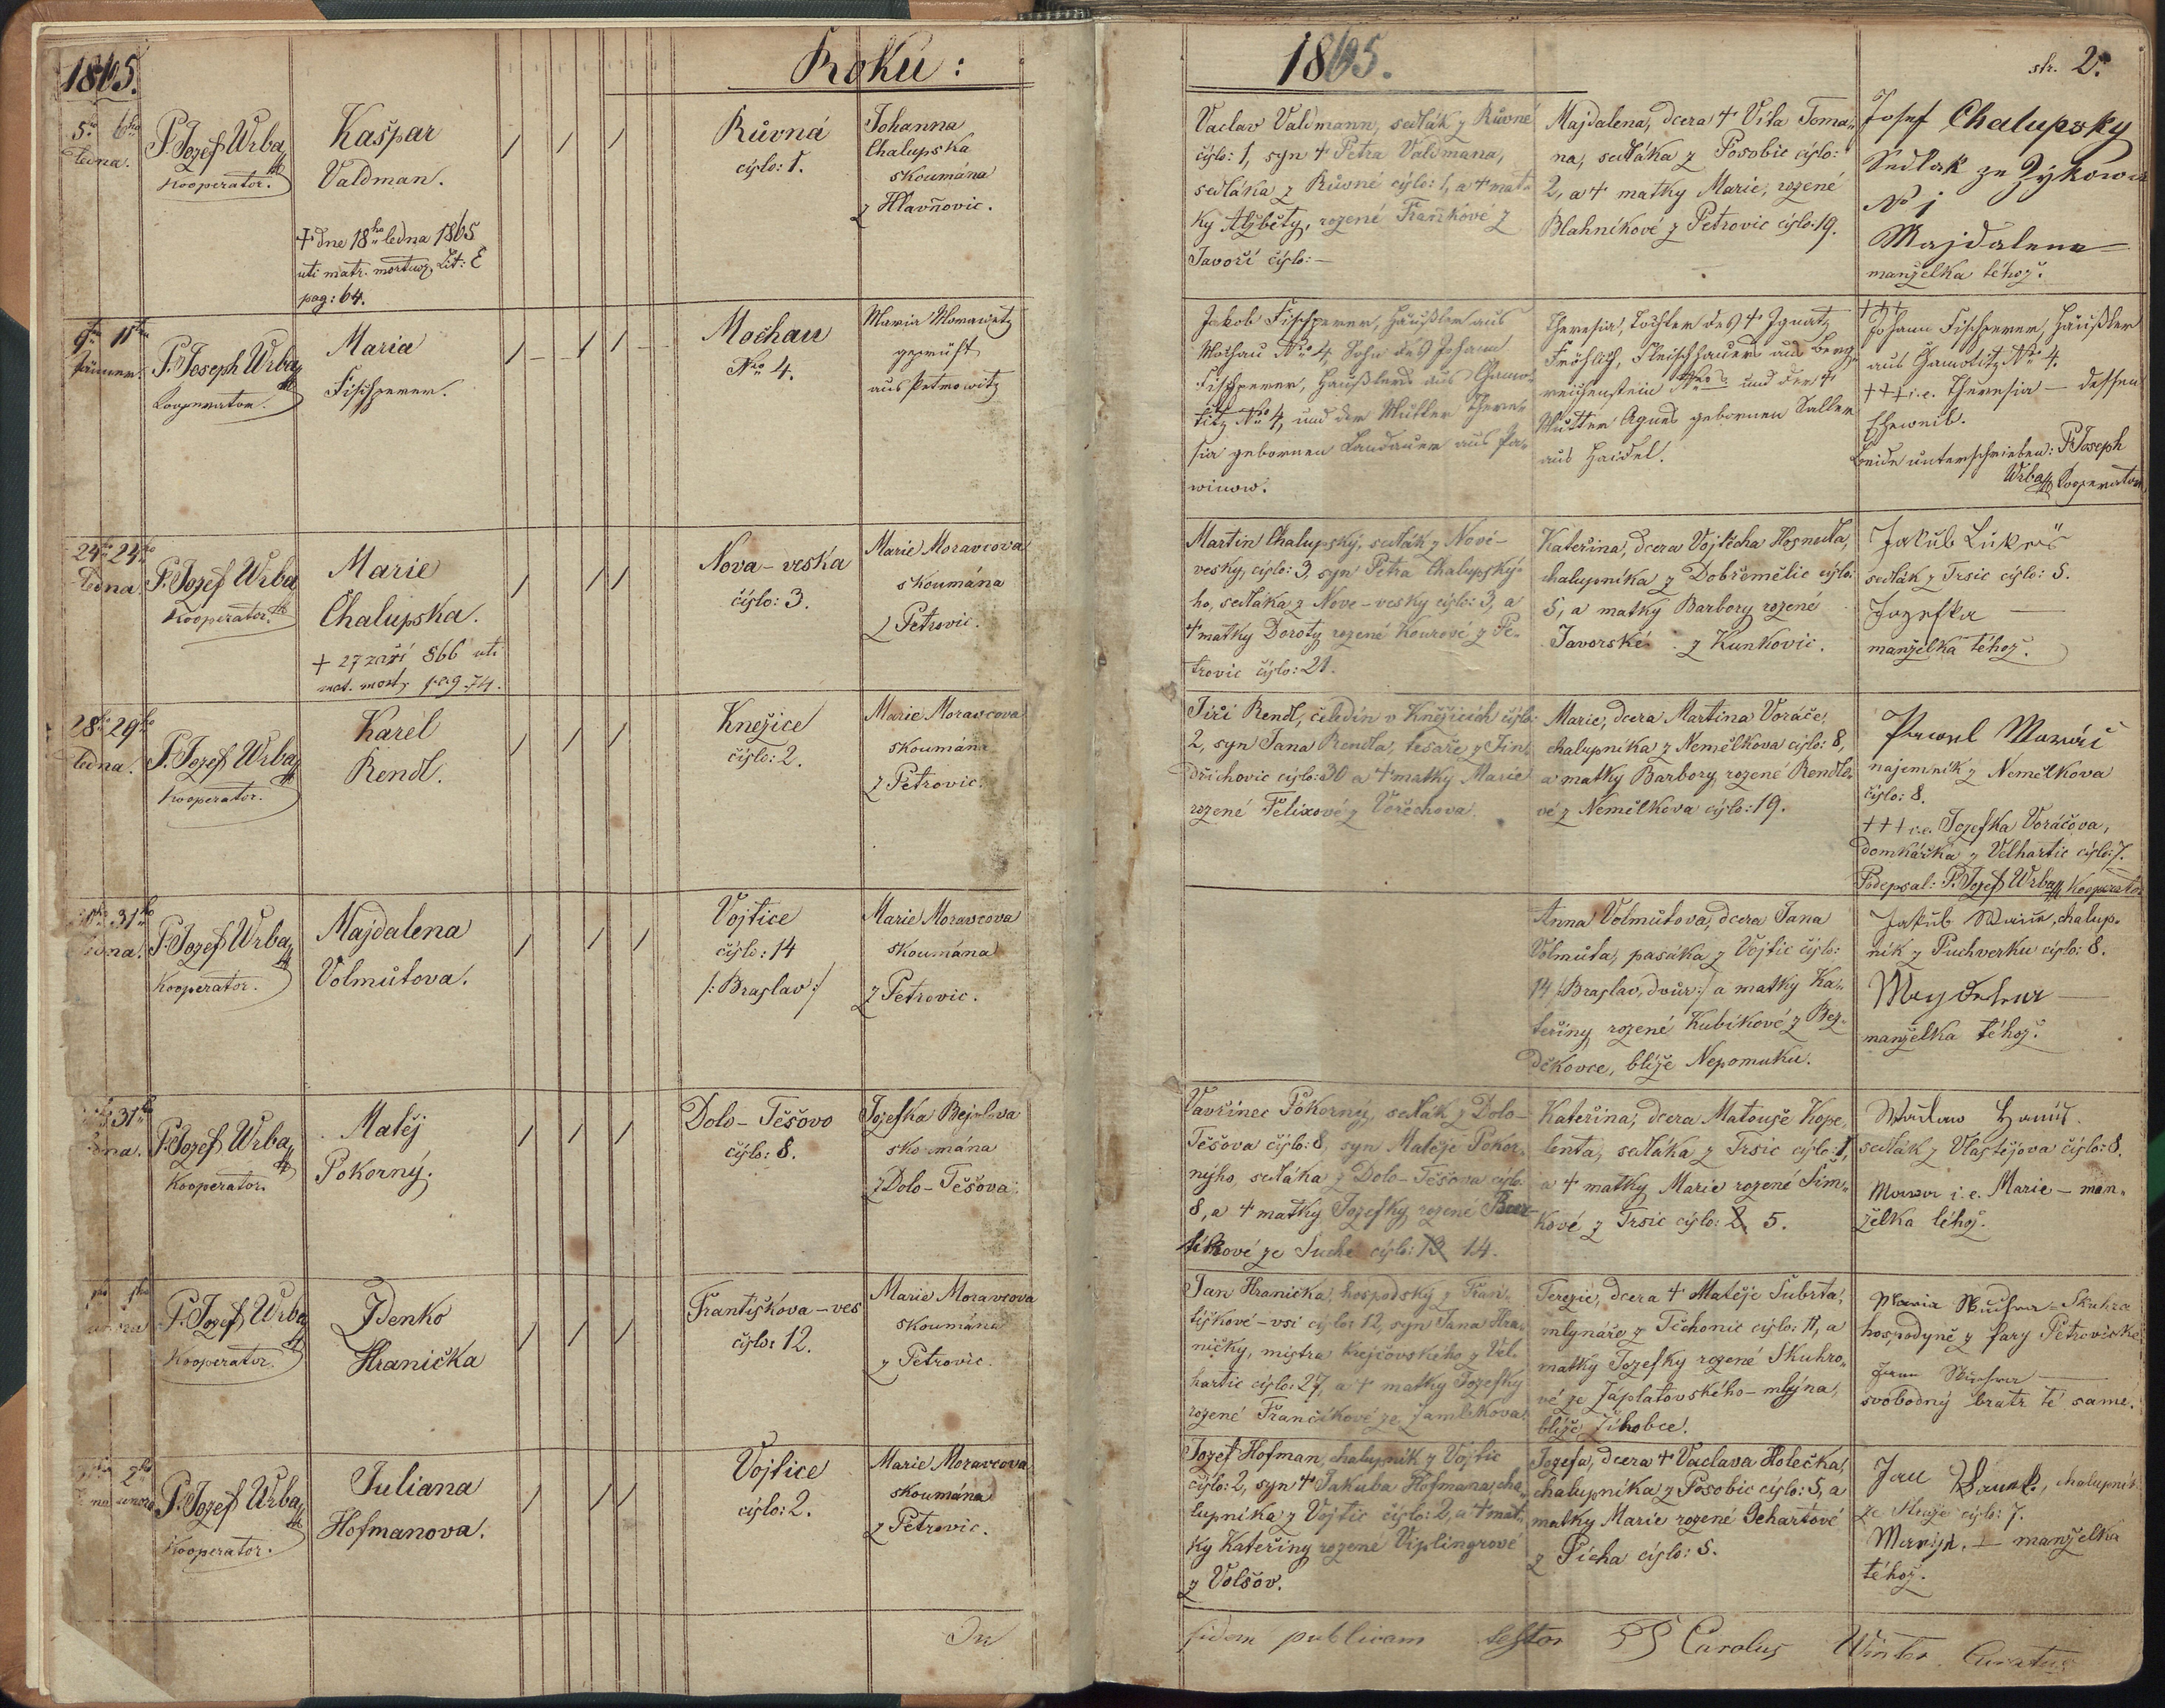 1865.
Roku:
1865.
str. 2.
5ho 6ho
ledna.
P. Jozef Wrba
Kooperator.
Kašpar
Valdman.
+ dne 18ho ledna 1865
uti matr. mortuor. Lit: E
pag: 64.
Růvná
čjslo: 1.
Johanna
Chalupska
skoumána
z Hlavňovic.
Vaclav Valdmann, sedlák z Růvné
čjslo: 1, syn + Petra Valdmana,
sedláka z Růvné čjslo: 1, a + mat-
ky Alžběty, rozené Fraňkové z
Javoří čjslo: —
Majdalena, dcera + Víta Toma-
na, sedláka z Posobic čjslo:
2, a + matky Marie, rozené
Blahníkové z Petrovic čjslo: 19.
Josef Chalupsky
Sedlak ze Zykowa
No 1
Majdalena —
manželka téhož.
9ten 11ten
Jänner.
P. Joseph Wrba
Kooperator.
Maria
Fischperer.
Mochau
Nro 4.
Maria Morawetz
geprüft
aus Petrowitz
Jakob Fischperer, Häußler aus
Mochau Nro 4, Sohn des Johann
Fischperer, Häußlers aus Chamo-
titz No 4, und der Mutter There-
sia gebornen Landauer aus Pa-
winow.
Theresia, Tochter des + Ignatz
Fröhlich, Fleischhauers aus Berg-
reichenstein und der +
Mutter Agnes gebornen Saller
aus Haidel.
+++
Johann Fischperer, Häußler
aus Chamotitz No 4.
+++ i.e. Theresia — dessen
Eheweib.
Beide unterschrieben: P. Joseph
Wrba Kooperator
24ho 24ho
ledna.
P. Jozef Wrba
Kooperator.
Marie
Chalupska.
+ 27 září 866 uti
mat. mort. pag. 74.
Nova-veska
čjslo: 3.
Marie Moravcova
skoumána
z Petrovic.
Martin Chalupský, sedlák z Nové-
vesky, čjslo: 3, syn Petra Chalupský-
ho, sedláka z Nove-vesky čjslo: 3, a
+ matky Doroty rozené Kourové z Pe-
trovic čjslo: 21.
Kateřina, dcera Vojtěcha Hosnedla,
chalupníka z Dobřemělic čjslo:
5, a matky Barbory rozené
Javorské z Kunkovic.
Jakub
sedlák z Trsic čjslo: 5.
Jozefka —
manželka téhož.
28ho 29ho
ledna.
P. Jozef Wrba
Kooperator.
Karel
Rendl.
Knežice
čjslo: 2.
Marie Moravcova
skoumána
z Petrovic.
Jiří Rendl, čeledín v Knežicích čjslo:
2, syn Jana Rendla, tesaře z Jin-
dřichovic čjslo: 30 a + matky Marie
rozené Felixové z Vořechova.
Marie, dcera Martina Voráče,
chalupníka z Nemělkova čjslo: 8,
a matky Barbory, rozené Rendlo-
vé z Nemělkova čjslo: 19.
Pawel Woráč
najemník z Nemělkova
čjslo: 8.
+++ i.e. Jozefka Voráčova,
domkářka z Velhartic čjslo: 7.
Podepsal: P. Jozef Wrba Kooperator
31ho
ledna.
P. Jozef Wrba
Kooperator.
Majdalena
Volmutova.
Vojtice
čjslo: 14
/: Braslav :/
Marie Moravcova
skoumána
z Petrovic.
Anna Volmutova, dcera Jana
Volmuta, pasáka z Vojtic čjslo:
14 /: Braslav, dvůr :/ a matky Ka-
teřiny rozené Kubíkové z Bez-
děkovce, blíže Nepomuku.
Jakub, chalup-
ník z Puchverku čjslo: 8.
Maydalena —
manželka téhož.
31ho
ledna.
P. Jozef Wrba
Kooperator.
Matěj
Pokorný.
Dolo-Těšovo
čjslo: 8.
Jozefka Bejdova
skoumána
z Dolo-Těšova.
Vavřinec Pokorný, sedlák z Dolo-
Těšova čjslo: 8, syn Matěje Pokor-
nýho, sedláka z Dolo-Těšova čjslo
8, a + matky Jozefky rozené Bar-
tíkové ze Suché čjslo: 13 14.
Kateřina, dcera Matouše Kope-
lenta, sedláka z Trsic čjslo: 1,
a + matky Marie rozené Šim-
kové z Trsic čjslo: 2 5.
sedlák z Vlastějova čjslo: 8.
i.e. Marie — man-
želka téhož.
února
P. Jozef Wrba
Kooperator.
Zdenko
Hranička
Františkova-ves
čjslo: 12.
Marie Moravcova
skoumána
z Petrovic.
Jan Hranička, hospodský z Fran-
tiškové-vsi čjslo: 12, syn Jana Hra-
ničky, mistra krejčovského z Vel-
hartic čjslo: 27, a + matky Jozefky
rozené Frančíkové ze Žamlekova.
Terezie, dcera + Matěje Šubrta,
mlynáře z Těchonic čjslo: 11, a
matky Jozefky rozené Skuhro-
vé ze Záplatovského-mlýna,
blíže Žihobce.
Maria Skuhra = Skuhra
hospodyně z fary Petrovické
Jan Skuhra —
svobodný bratr té same.
2ho
února
P. Jozef Wrba
Kooperator.
Juliana
Hofmanova.
Vojtice
čjslo: 2.
Marie Moravcova
skoumána
z Petrovic.
Jozef Hofman, chalupník z Vojtic
čjslo: 2, syn + Jakuba Hofmana, cha-
lupníka z Vojtic čjslo: 2, a + mat-
ky Kateřiny rozené Viplingrové
z Volšov.
Jozefa, dcera + Vaclava Holečka,
chalupníka z Posobic čjslo: 5, a
matky Marie rozené Gehartové
z Pícha čjslo: 5.
Jan, chalupník
čjslo: 7.
Marija. — manželka
téhož.
In
fidem publicam testor P. Carolus Winter Curatus